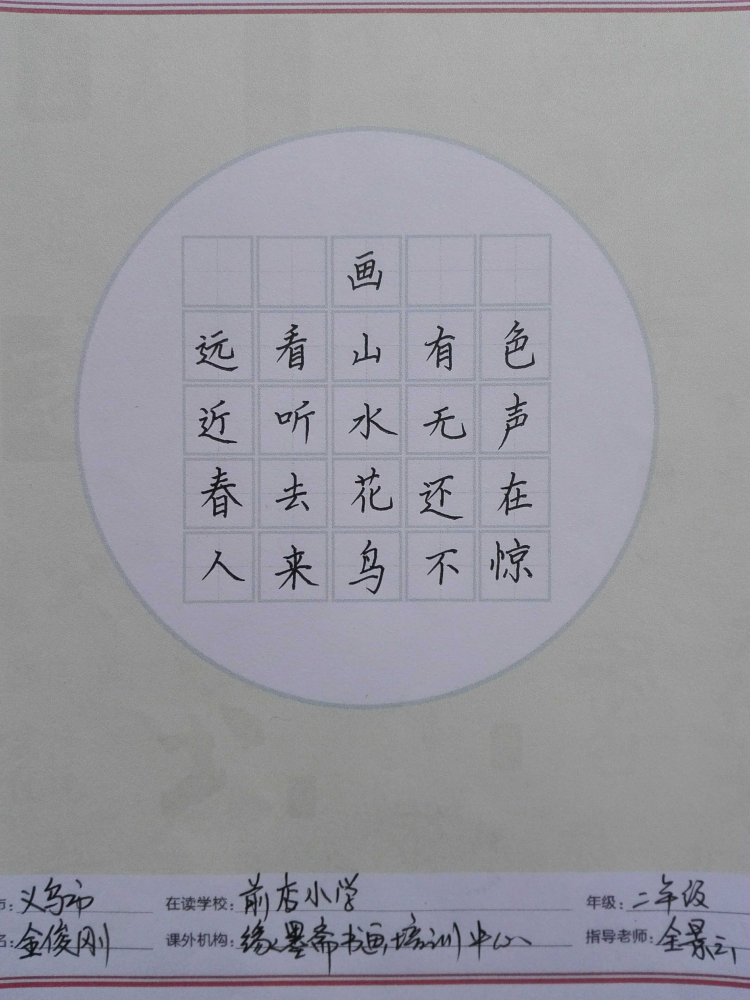 画
远看山有色
近听水无声
春去花还在
人来鸟不惊
市:义乌市 在读学校:前店小学 年级:二年级
名:金俊刚 课外机构:缘墨斋书画培训中心 指导老师:全景云